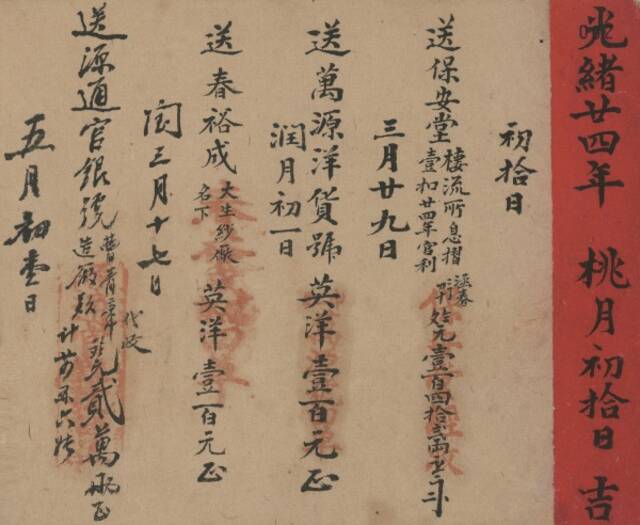 光緒廿四年 桃月初拾日 吉
初拾日
送保安堂 棲流所息摺
壹扣廿四年官利
元壹百四拾弍兩
三月廿九日
送萬源洋貨號 英洋壹百元正
潤月初一日
送春裕成 大生紗廠
名下 英洋壹百元正
閏三月十七日
送源通官銀號
造廠款
代收
貳萬兩正
五月初壹日